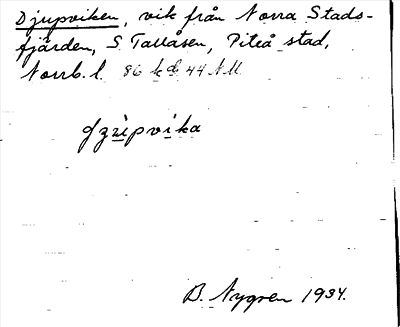 Djupviken, vik från Norra Stads-
fjärden, S. Tallåsen, Piteå stad,
Norrb. l. 86
B. Nygren 1934.